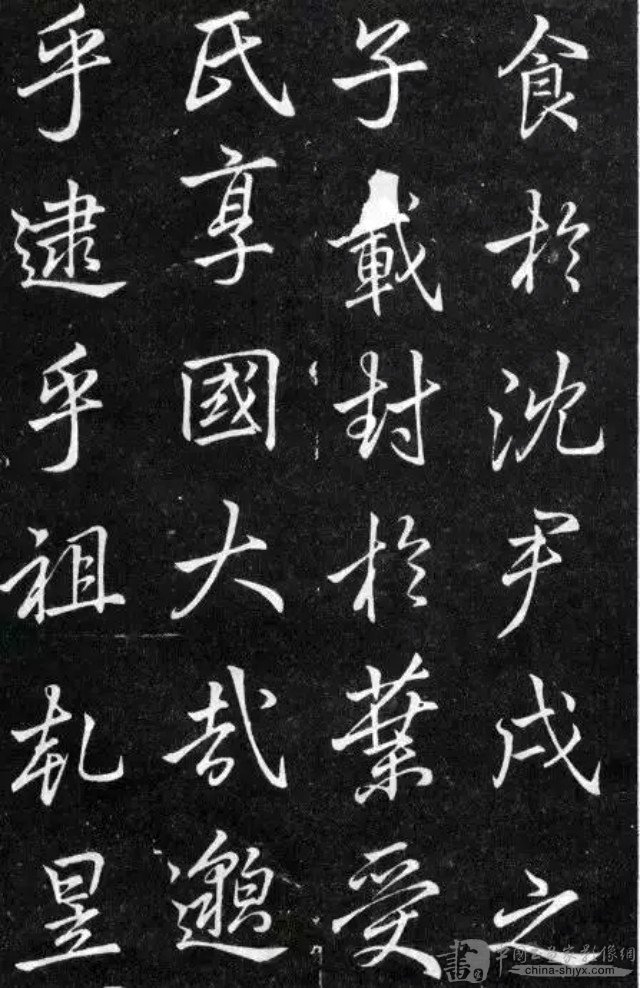 食於沈尹戌之
子載封於葉受
氏享國大哉邈
乎逮乎祖乾昱
書
中國书画家影像網
china-shjyx.com